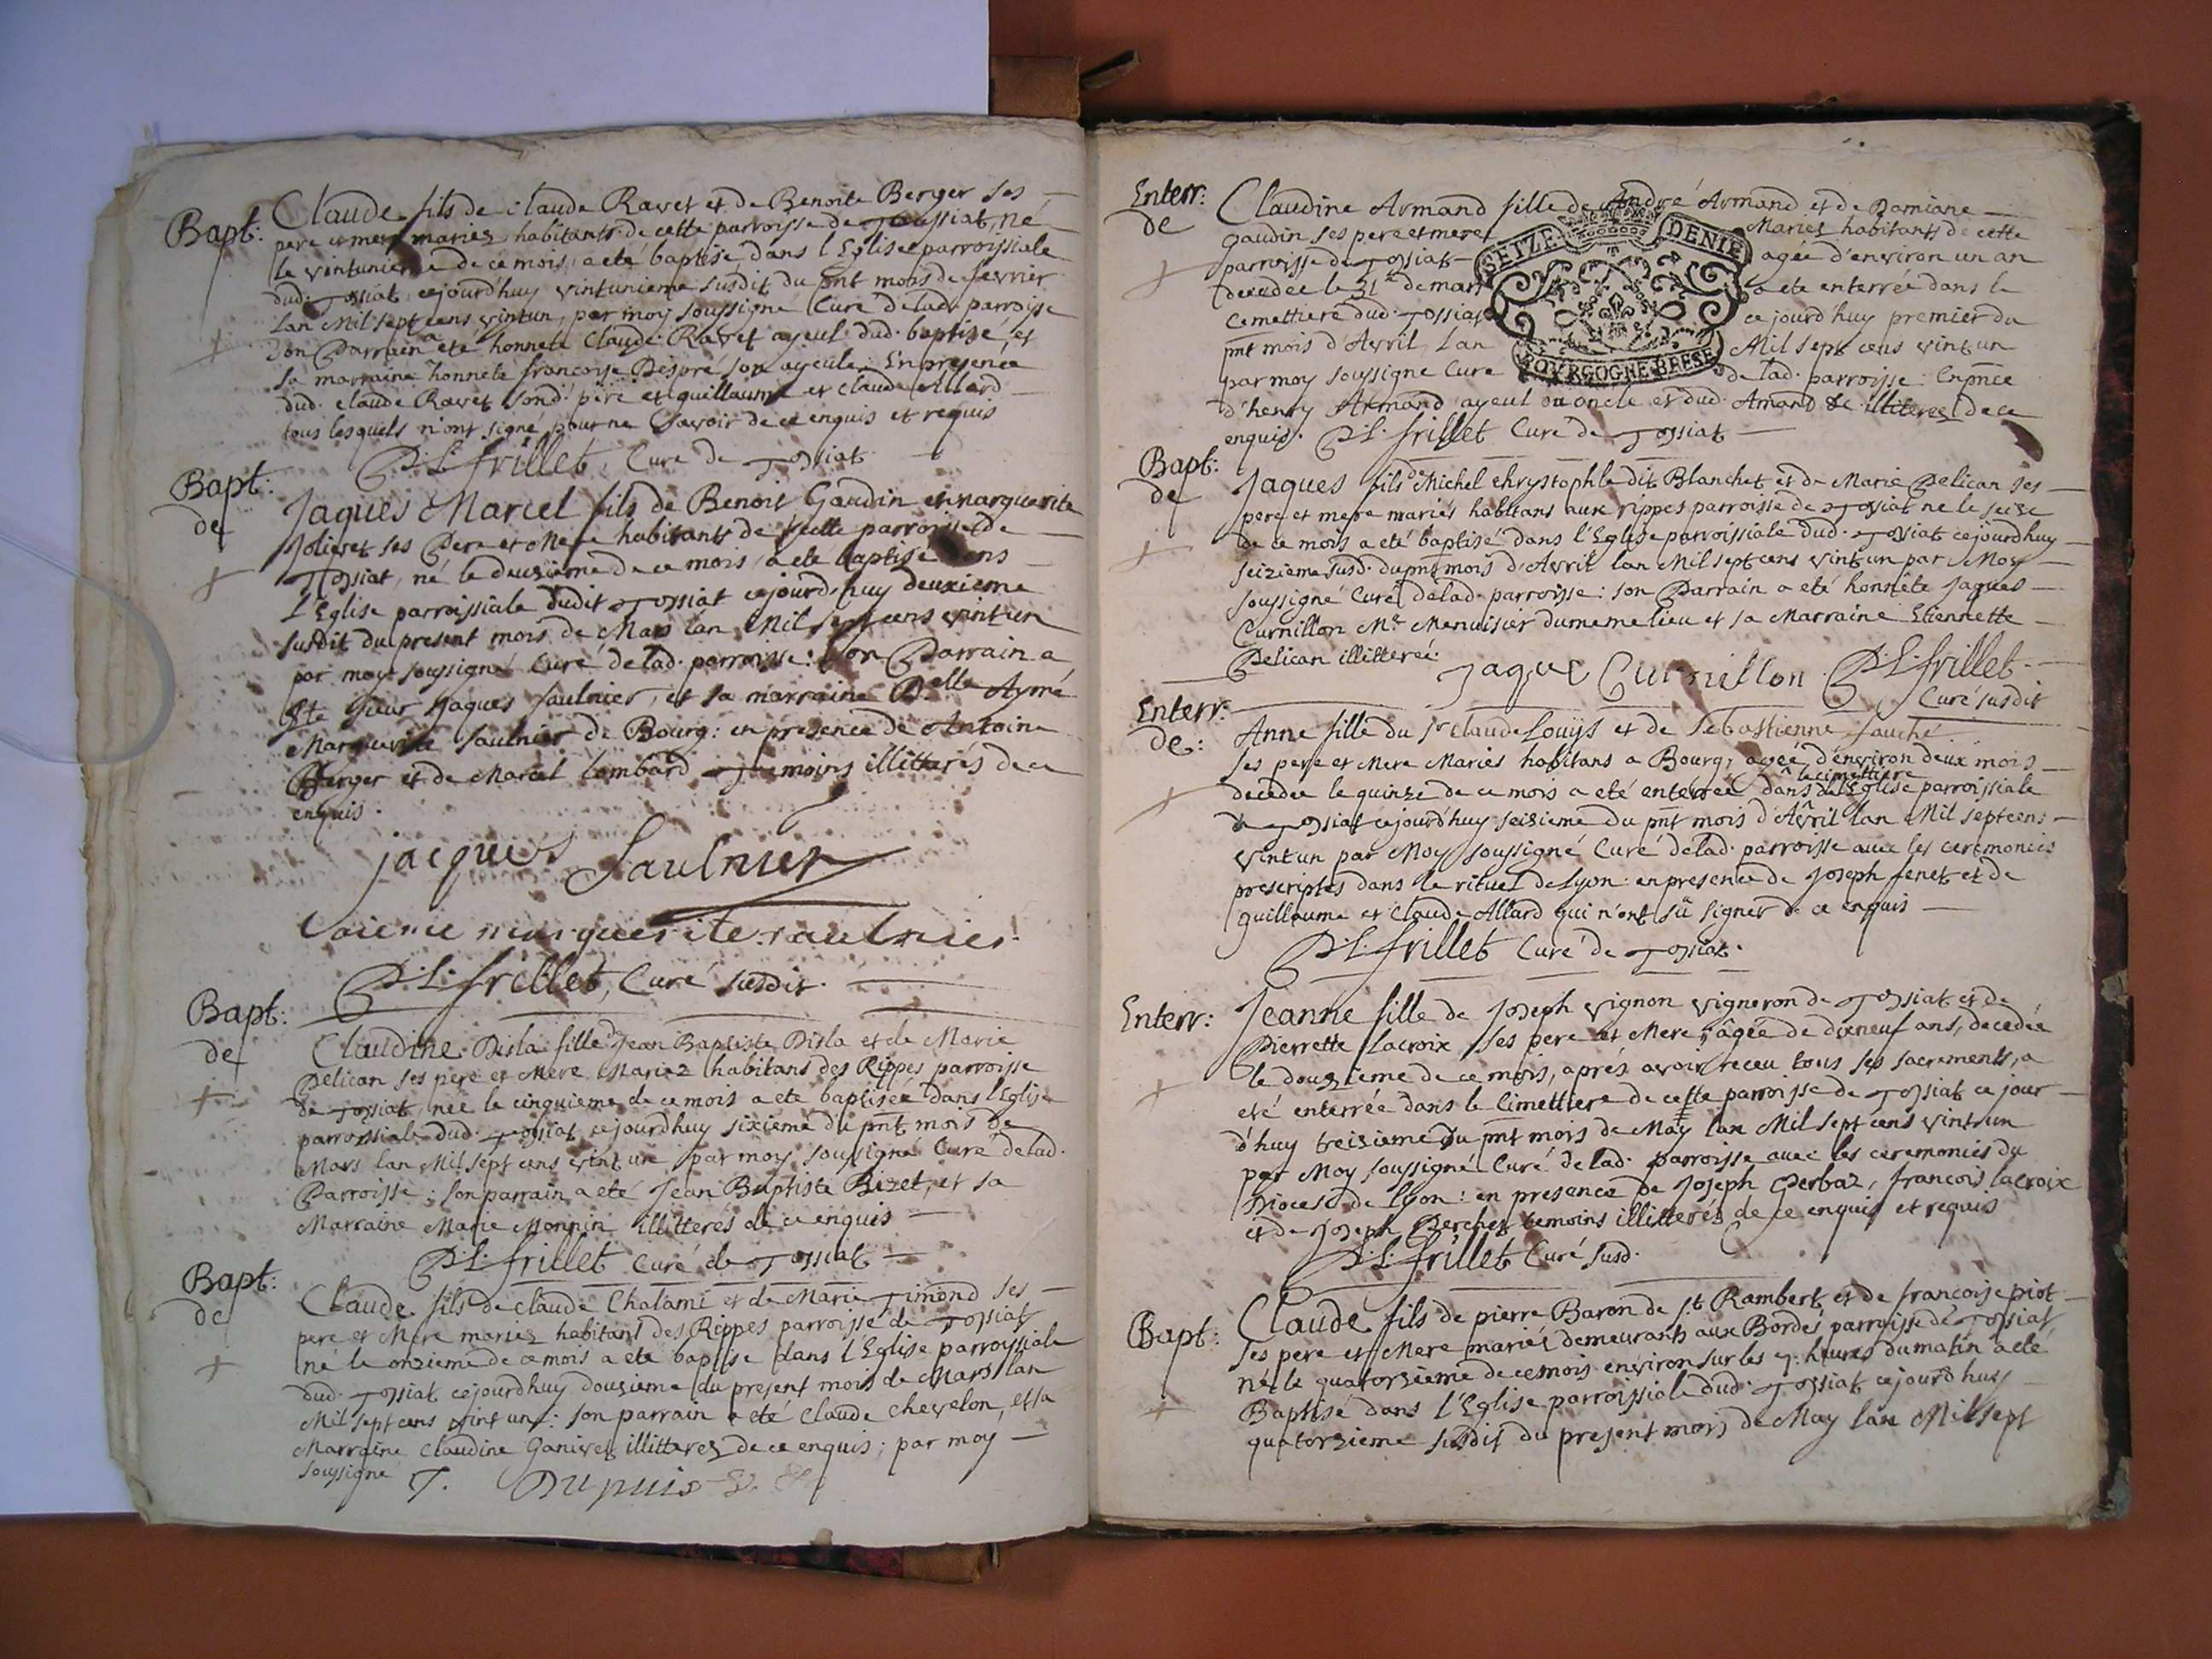 Bapt:
Claude fils de Claude Ravet et de Benoite Berger ses
pere et mere mariez habitants de cette parroisse de Toussiat, né
le vintunieme de ce mois, a eté baptisé dans l'Eglise parroissiale
dud. Tossiat cejourd'huy vintunieme susdit du pnt mois de fevrier
Lan Mil sept cens vintun, par moy soussigné Curé de lad. parroisse
Son Parrain a eté honnete Claude Ravet ayeul dud. baptisé, et
sa marraine honnete francoise Despré son ayeule: En presence
dud. Claude Ravet sond. pere et guillaume et Claude Allard
tous lesquels n'ont signé pour ne Savoir de ce enquis et requis
P.L. frillet, Curé de Tossiat
Bapt:
de
Jaques Marcel fils de Benoit Gaudin et Marguerite
Jolivet ses Pere et Mere habitants de cette parroisse de
Tossiat, né le deuxieme de ce mois, a eté baptisé dans
l'Eglise parroissiale dudit Tossiat cejourd'huy deuxieme
susdit du present mois de Mars lan Mil sept cens vintun
par moy soussigné Curé de lad. parroisse: Son Parrain a
été sieur Jaques Saulnier, et sa marraine Delle Aymé
Marguerite Saulnier de Bourg: en presence de Antoine
Berger et de Marcel Lombard temoins illitterés de ce
enquis.
jacques Saulnier
marguerite saulnier
P.L. frillet, Curé susdit.
Bapt:
de
Claudine Disla fille d Jean Baptiste Disla et de Marie
Pelican ses pere et Mere Mariez habitans des Rippes parroisse
de Tossiat, née le cinquieme de ce mois a eté baptisée dans l'Eglise
parroissiale dud. Tossiat cejourd'huy sixieme du pnt mois de
Mars lan Mil sept cens vint un par moy soussigné Curé de lad.
Parroisse: son parrain a eté Jean Baptiste Bizet, et sa
Marraine Marie Monnin illitterés de ce enquis
P.L. frillet Curé de Tossiat
Bapt:
de
Claude fils de Claude Chalamé et de Marie Timond ses
pere et Mere mariez habitans des Rippes parroisse de Tossiat
né le onzieme de ce mois a eté baptisé dans l'Eglise parroissiale
dud. Tossiat cejourd'huy douzieme du present mois de Mars lan
Mil sept cens vint un: son parrain a eté Claude Chevelon, et sa
Marraine Claudine Ganivet illitterez de ce enquis; par moy
soussigné J. Dupuis
Enterr:
de
Claudine Armand fille de André Armand et de Damiane
Gaudin ses pere et mere Mariez habitants de cette
parroisse de Tossiat agée d'environ un an
decedée le 31e de mars a eté enterrée dans le
Cemettiere dud. Tossiat cejourd'huy premier du
pnt mois d'Avril Lan Mil sept cens vint un
par moy soussigné Curé de lad. parroisse: En pnce
d'henry Armand ayeul ou oncle et dud. Amand illiterez de ce
enquis. P.L. frillet Curé de Tossiat
SEIZE DENIE
BOURGOGNE BRESE
Bapt:
de
Jaques fils d Michel Chrystophle dit Blanchet et de Marie Pelican ses
pere et mere mariés habitans aux rippes parroisse de Tossiat né le seize
de ce mois a eté baptisé dans l'Eglise parroissiale dud. Tossiat cejourd'huy
seizieme susd. du pnt mois d'Avril lan Mil sept cens vint un par Moy
soussigné Curé de lad. parroisse: son Parrain a eté honnête Jaques
Curnillon Me Menuisier du meme lieu et sa Marraine Etiennette
Pelican illitteré.
Jaque Curnillon P.L. frillet
Curé susdit
Enterr:
de:
Anne fille du Sr Claude Louys et de Sebastienne Sauché
ses pere et Mere Mariés habitans a Bourg, agée d'environ deux mois
decedée le quinze de ce mois a eté enterrée dans le cimettiere de l'Eglise parroissiale
de Tossiat cejourd'huy seizieme du pnt mois d'Avril lan Mil sept cens
vint un par Moy soussigné Curé de lad. parroisse avec les ceremonies
prescriptes dans le rituel de Lyon: en presence de Joseph fenet et de
guillaume et Claude Allard qui n'ont sû signer de ce enquis
P.L. frillet Curé de Tossiat.
Enterr:
Jeanne fille de Joseph Vignon vigneron de Tossiat et de
Pierrette Lacroix ses pere et Mere, âgée de dixneuf ans, decedée
le douzieme de ce mois, aprés avoir receu tous ses sacrements, a
eté enterrée dans le Cimettiere de cette parroisse de Tossiat ce jour
d'huy treizieme du pnt mois de May lan Mil sept cens vint un
par Moy soussigné Curé de lad. parroisse avec les ceremonies du
Diocese de Lyon: en presence de Joseph Gerbaz, francois lacroix
et de Joseph Berchet temoins illitterés de ce enquis et requis
P.L. frillet Curé susd.
Bapt:
Claude fils de pierre Baron de St Rambert et de francoise piot
ses pere et Mere mariez demeurants aux Bordes parroisse de Tossiat
né le quatorzieme de ce mois environ sur les 7. heures du matin a eté
Baptisé dans l'Eglise parroissiale dud. Tossiat cejourd'huy
quatorzieme susdit du present mois de May lan Mil sept